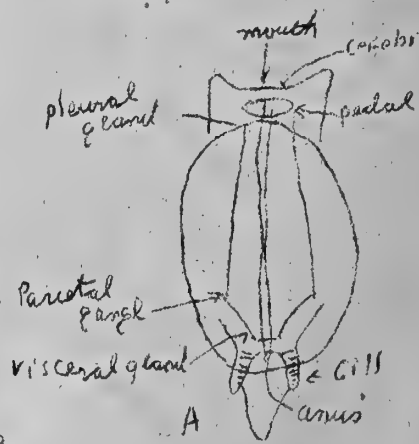 mouth
cerebr
pleural
gland
pedal
Parietal
gangl
visceral gland
Gill
anus
A